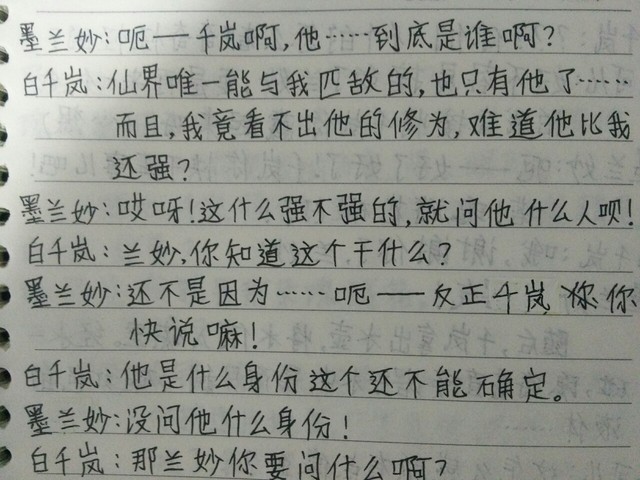 墨兰妙:呃——千岚啊,他……到底是谁啊?
白千岚:仙界唯一能与我匹敌的,也只有他了……
而且,我竟看不出他的修为,难道他比我
还强?
墨兰妙:哎呀!这什么强不强的,就问他什么人呗!
白千岚:兰妙,你知道这个干什么?
墨兰妙:还不是因为……呃——反正千岚你你
快说嘛!
白千岚:他是什么身份这个还不能确定。
墨兰妙:没问他什么身份!
白千岚:那兰妙你要问什么啊?